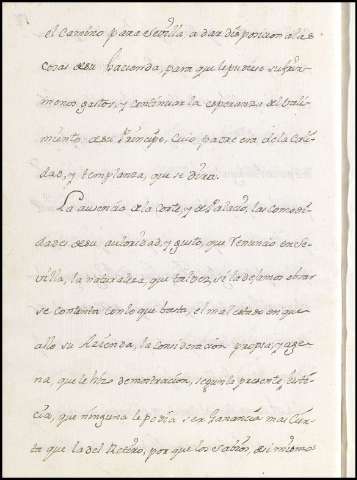 el Camino para Sevilla, a dar disposicion a las
cosas de su hacienda, para que le pudiese sufrir
menos gastos, y continuar la esperanza del Vali-
miento de su Principe, cuio padre era de la Cali-
dad, y templanza, que se dira.
La ausencia de la Corte, y de Palacio, las comodi-
dades de su autoridad, y gusto, que tenunão en Se-
villa, la naturaleza que tal vez, si la dejamos obrar
se contenta con lo que basta, el mal estado en que
allo su Azienda, la consideracion propia, y age-
na, que le hizo demostracion, segun le presente, distã-
cia, que ninguna le podia ser Ganancia mas Cier-
ta que la del Retiro, por que los Sabios, de si mismo